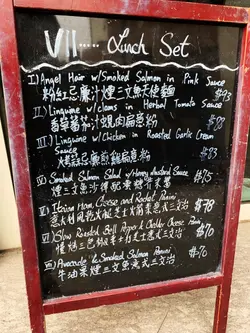 VII..... Lunch Set
I) Angel Hair w/Smoked Salmon in Pink Sauce
粉紅忌廉汁煙三文魚天使麵 $93
II) Linguine w/clams in Herbal Tomato Sauce
香草蕃茄汁蜆肉扁意粉 $88
III) Linguine w/Chicken in Roasted Garlic Cream Sauce
忌廉雞扁意粉 $83
Smoked Salmon Salad w/Honey Mustard Sauce
煙三文魚沙律配 $75
Ham, Cheese and Rocket Panini
意式三文治 $78
Slow Roasted Bell Pepper & Cheddar Cheese Panini
意式三文治 $70
Avocado & Smoked Salmon Panini
牛油果煙三文魚意式三文治 $70